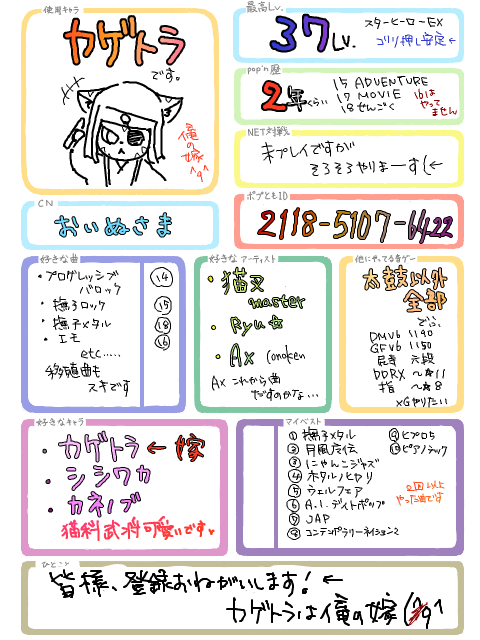 使用キャラ
カゲトラ
です。
俺
の
嫁
^q^
最高Lv.
37Lv.
スターヒーローEX
ゴリ押し安定←
pop'n歴
2年くらい
15 ADVENTURE
17 MOVIE
18 せんごく
16は
やって
ません
NET対戦
未プレイですが
そろそろやりまーす(←
CN
おいぬさま
ポプともID
2118-5107-6422
好きな曲
・プログレッシブ
バロック
14
・撫子ロック
15
・撫子メタル
18
・エモ
16
etc.....
移植曲も
スキです
好きなアーティスト
・猫叉
master
・Ryu☆
・Ax (onoken
Ax これから曲
だすのかな...
他にやってる音ゲー
太鼓以外
全部
でい。
DMV6 1190
GFV6 1150
弐寺 六段
DDRX ~☆11
指 ~★8
xGやりたい
好きなキャラ
・カゲトラ←嫁
・シシワカ
・カネノブ
猫科武将可愛いです♥
マイベスト
①撫子メタル
②月風魔伝
③にゃんこジャズ
④ホタルノヒカリ
⑤ウェルフェア
⑥A.I.デイトポップ
⑦JAP
⑧コンテンポラリーネイション2
⑨ヒプロ5
⑩ピアノテック
2回以上
やった曲です
ひとこと
皆様、登録おねがいします!←
カゲトラは俺の嫁(^q^